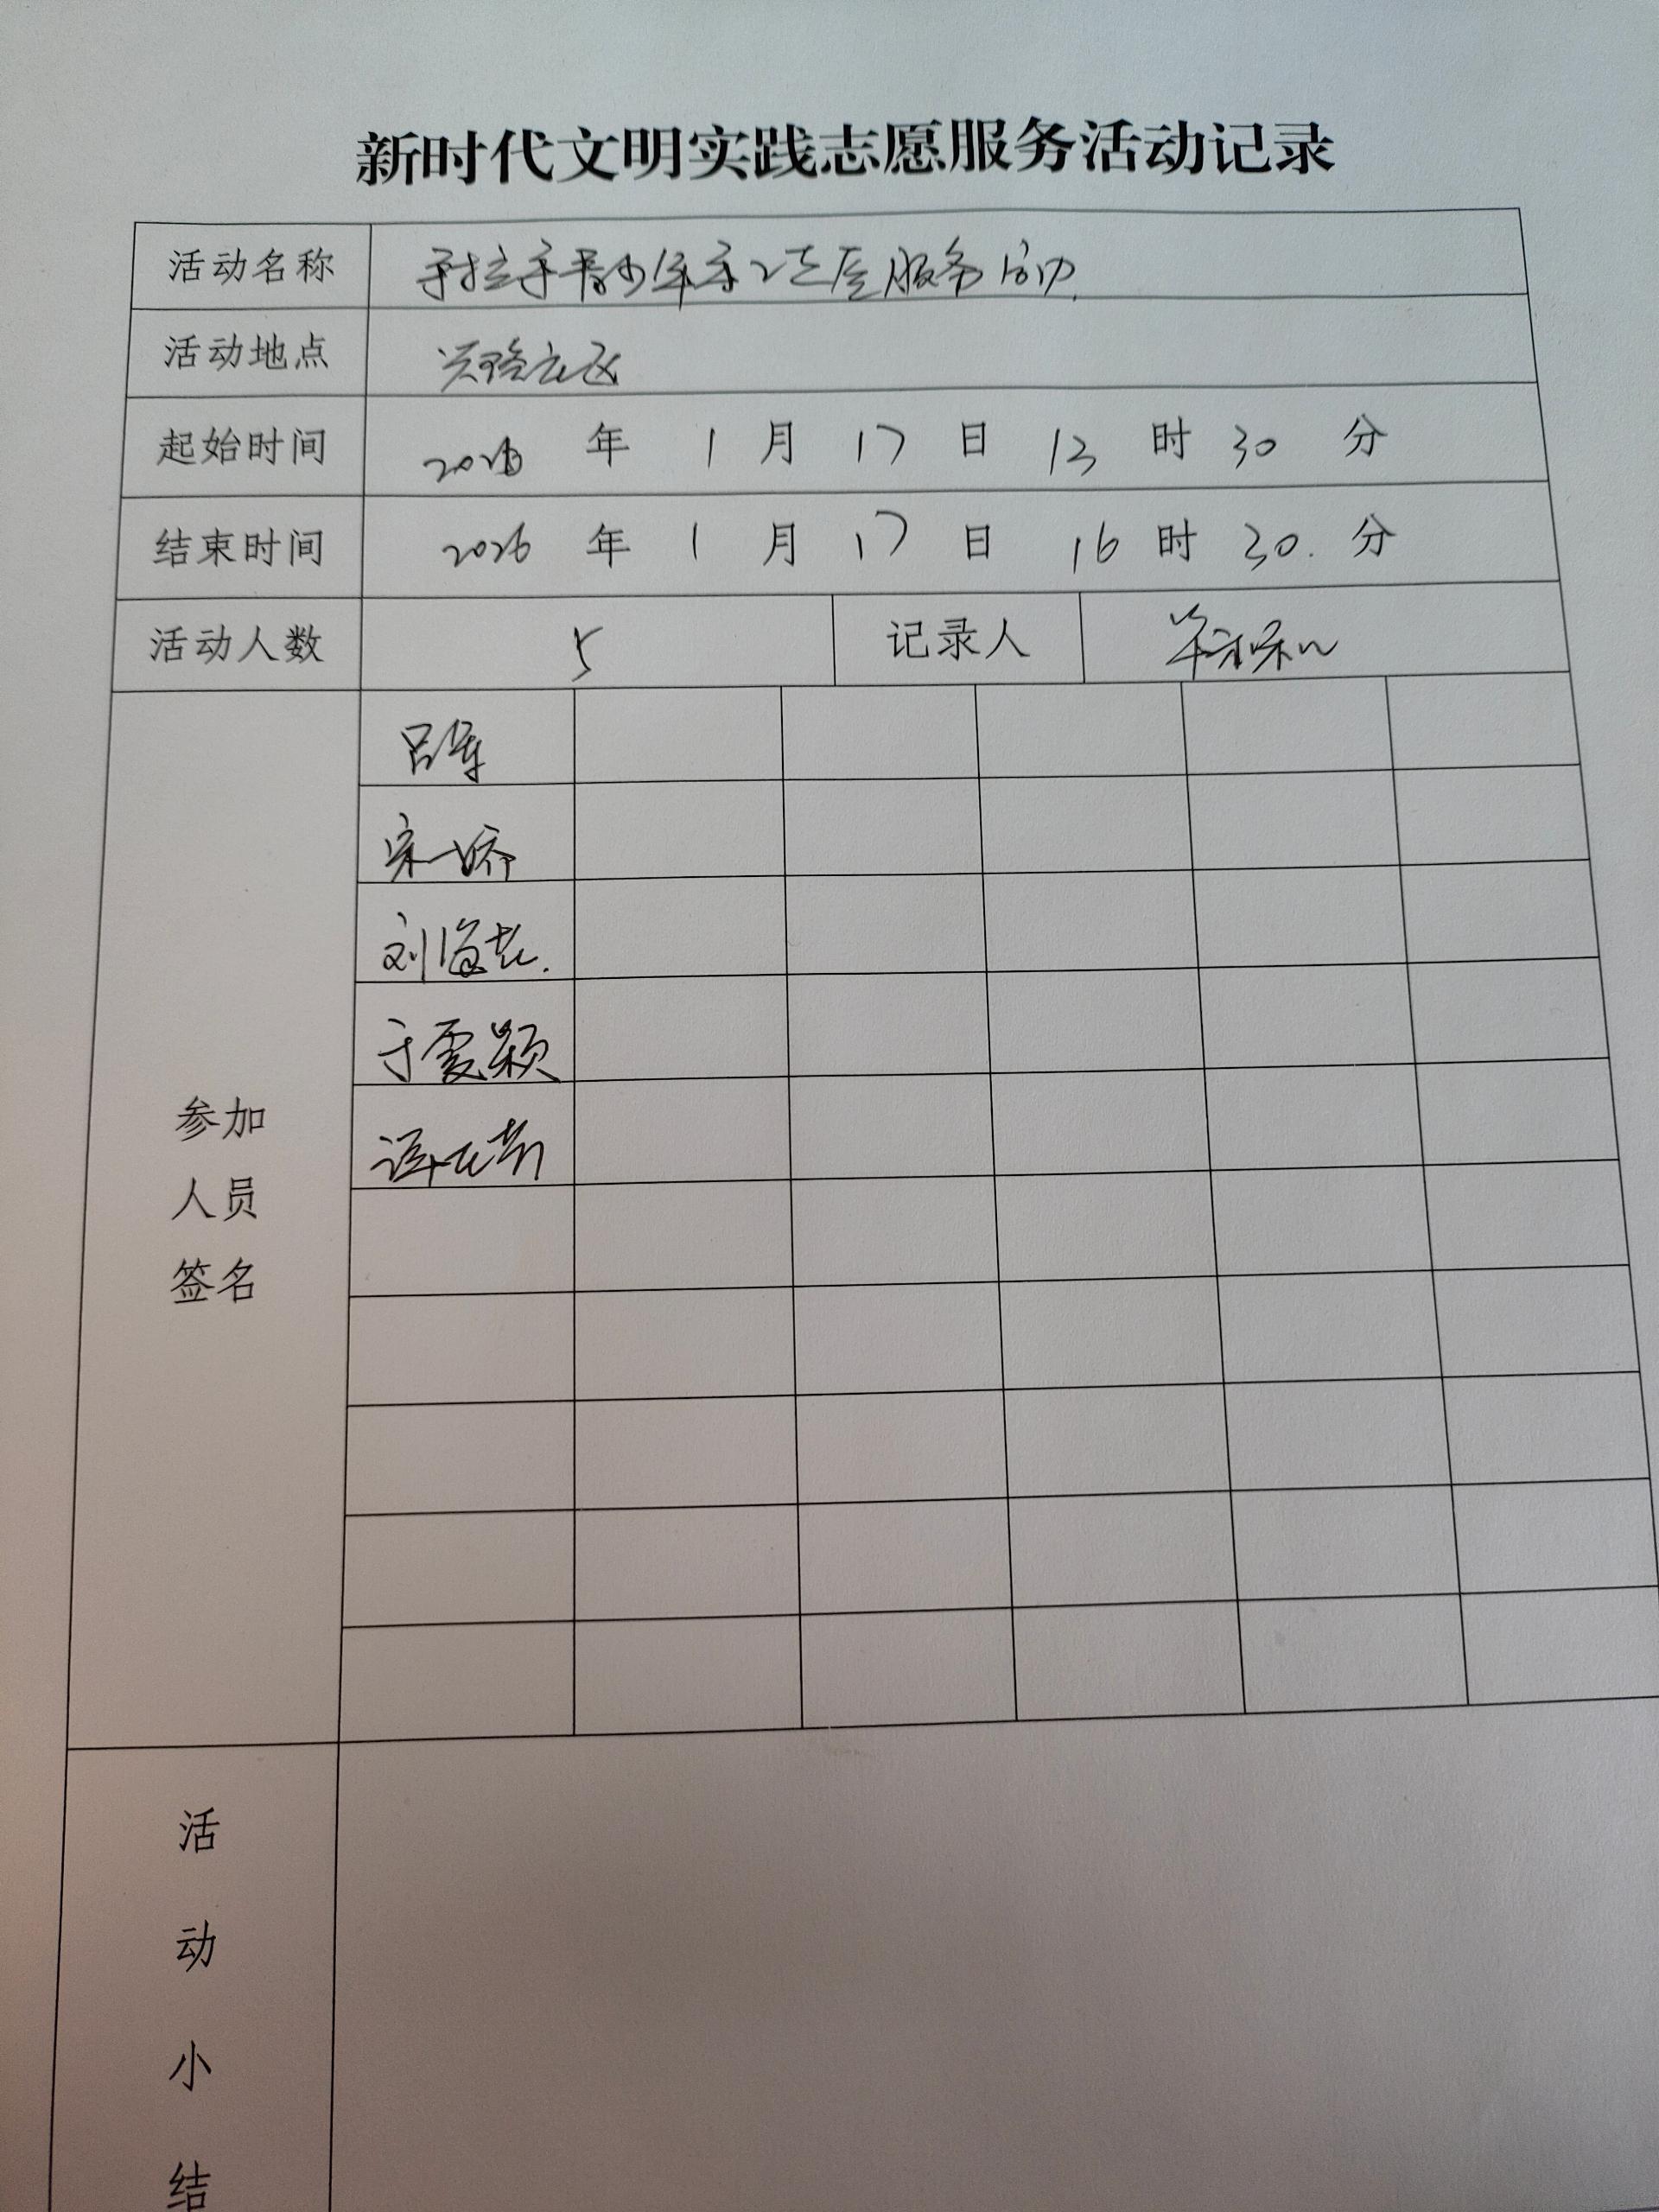 新时代文明实践志愿服务活动记录
活动名称 手拉手青少年手工志愿服务活动
活动地点 社区
起始时间 2026 年 1 月 17 日 13 时 30 分
结束时间 2026 年 1 月 17 日 16 时 30 分
活动人数 5 记录人
吕军
宋一娇
刘海龙
于雯颖
参加
人员
签名
活
动
小
结